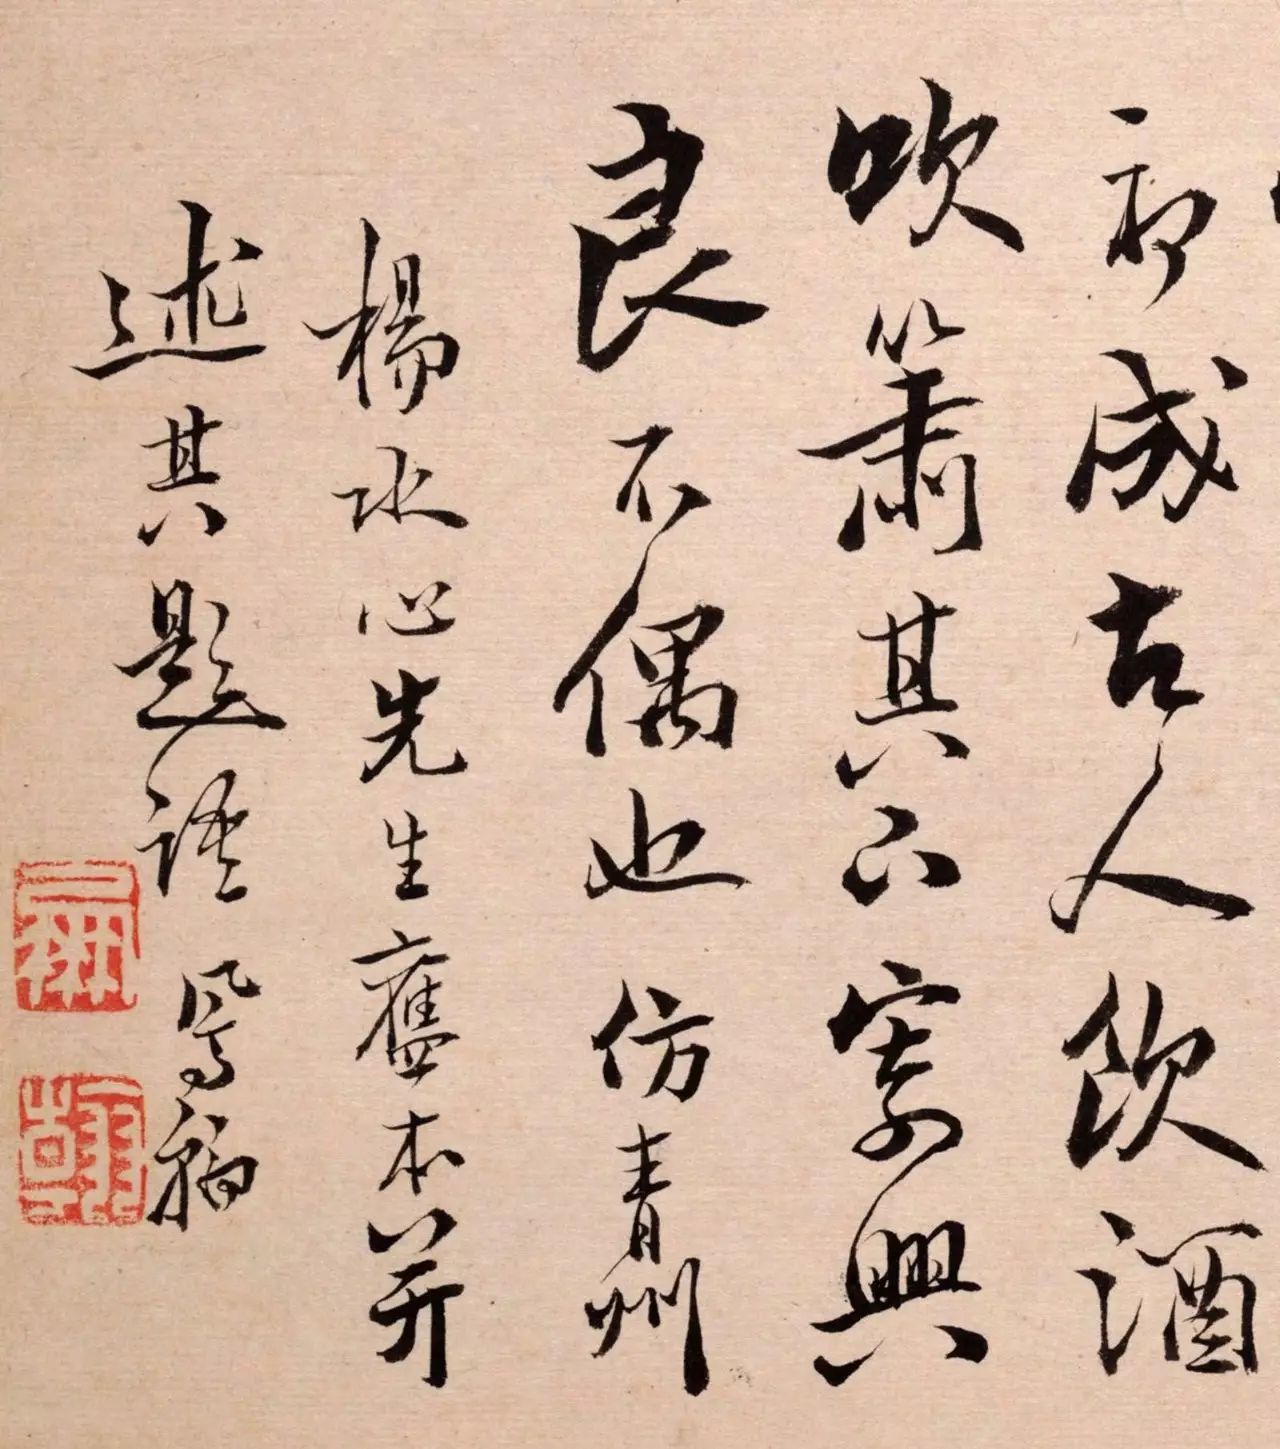 初成古人飲酒
吹簫其不寄興
良不偶也仿青州
楊水心先生舊本并
述其題語 鳳翰